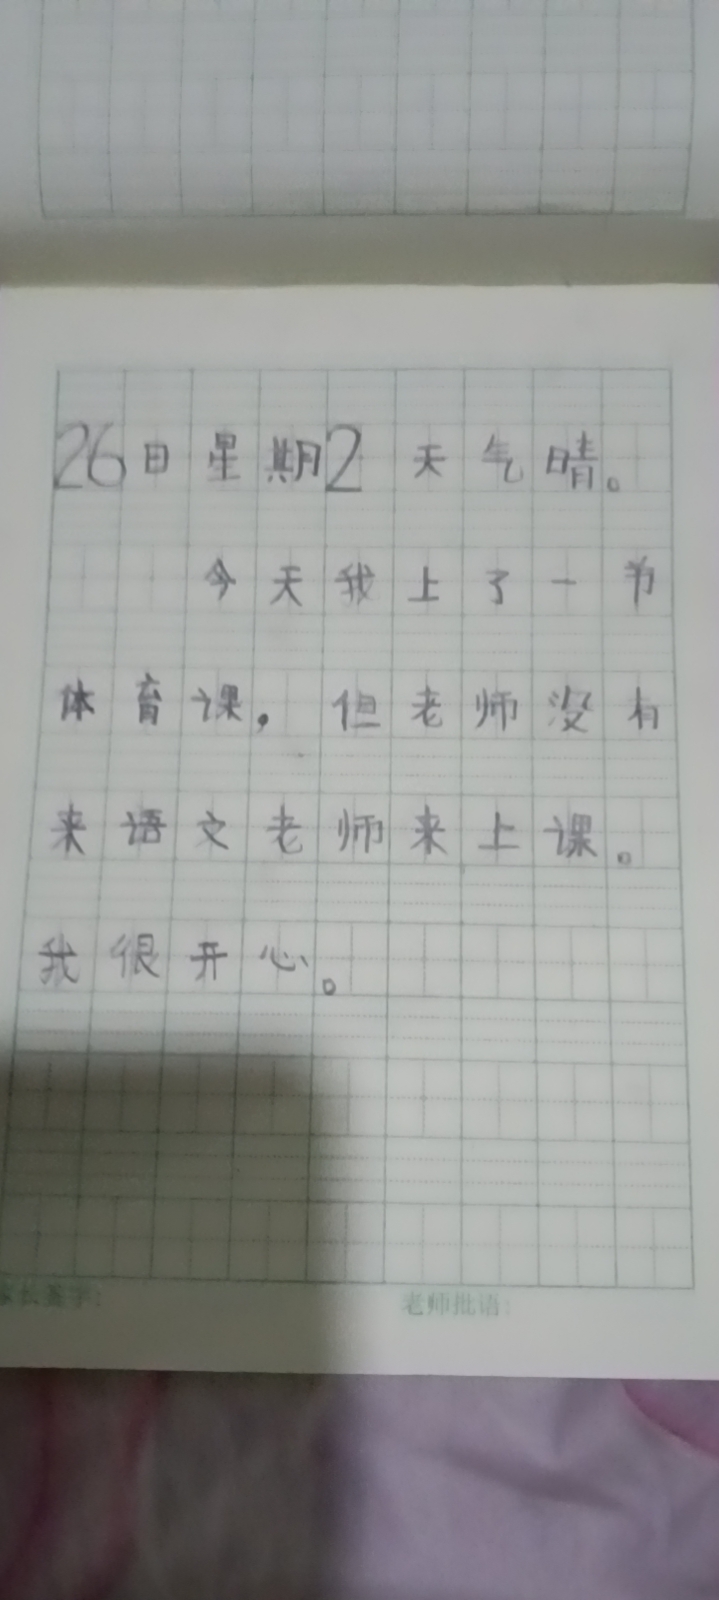 26日星期2 天气晴。
今天我上了一节
体育课，但老师没有
来语文老师来上课。
我很开心。
家长签字：
老师批语：